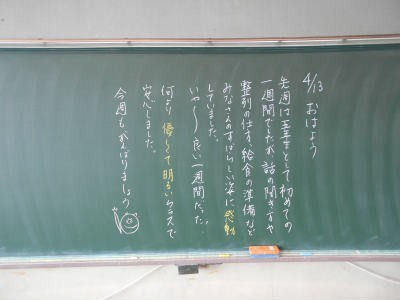 4/13 おはよう
先週は五年生として初めての
一週間でしたが、話の聞き方や
整列の仕方、給食の準備など
みなさんのすばらしい姿に感動
していました。
いや〜良い一週間だった。
何より優しくて明るいクラスで
安心しました。
今週もがんばりましょう